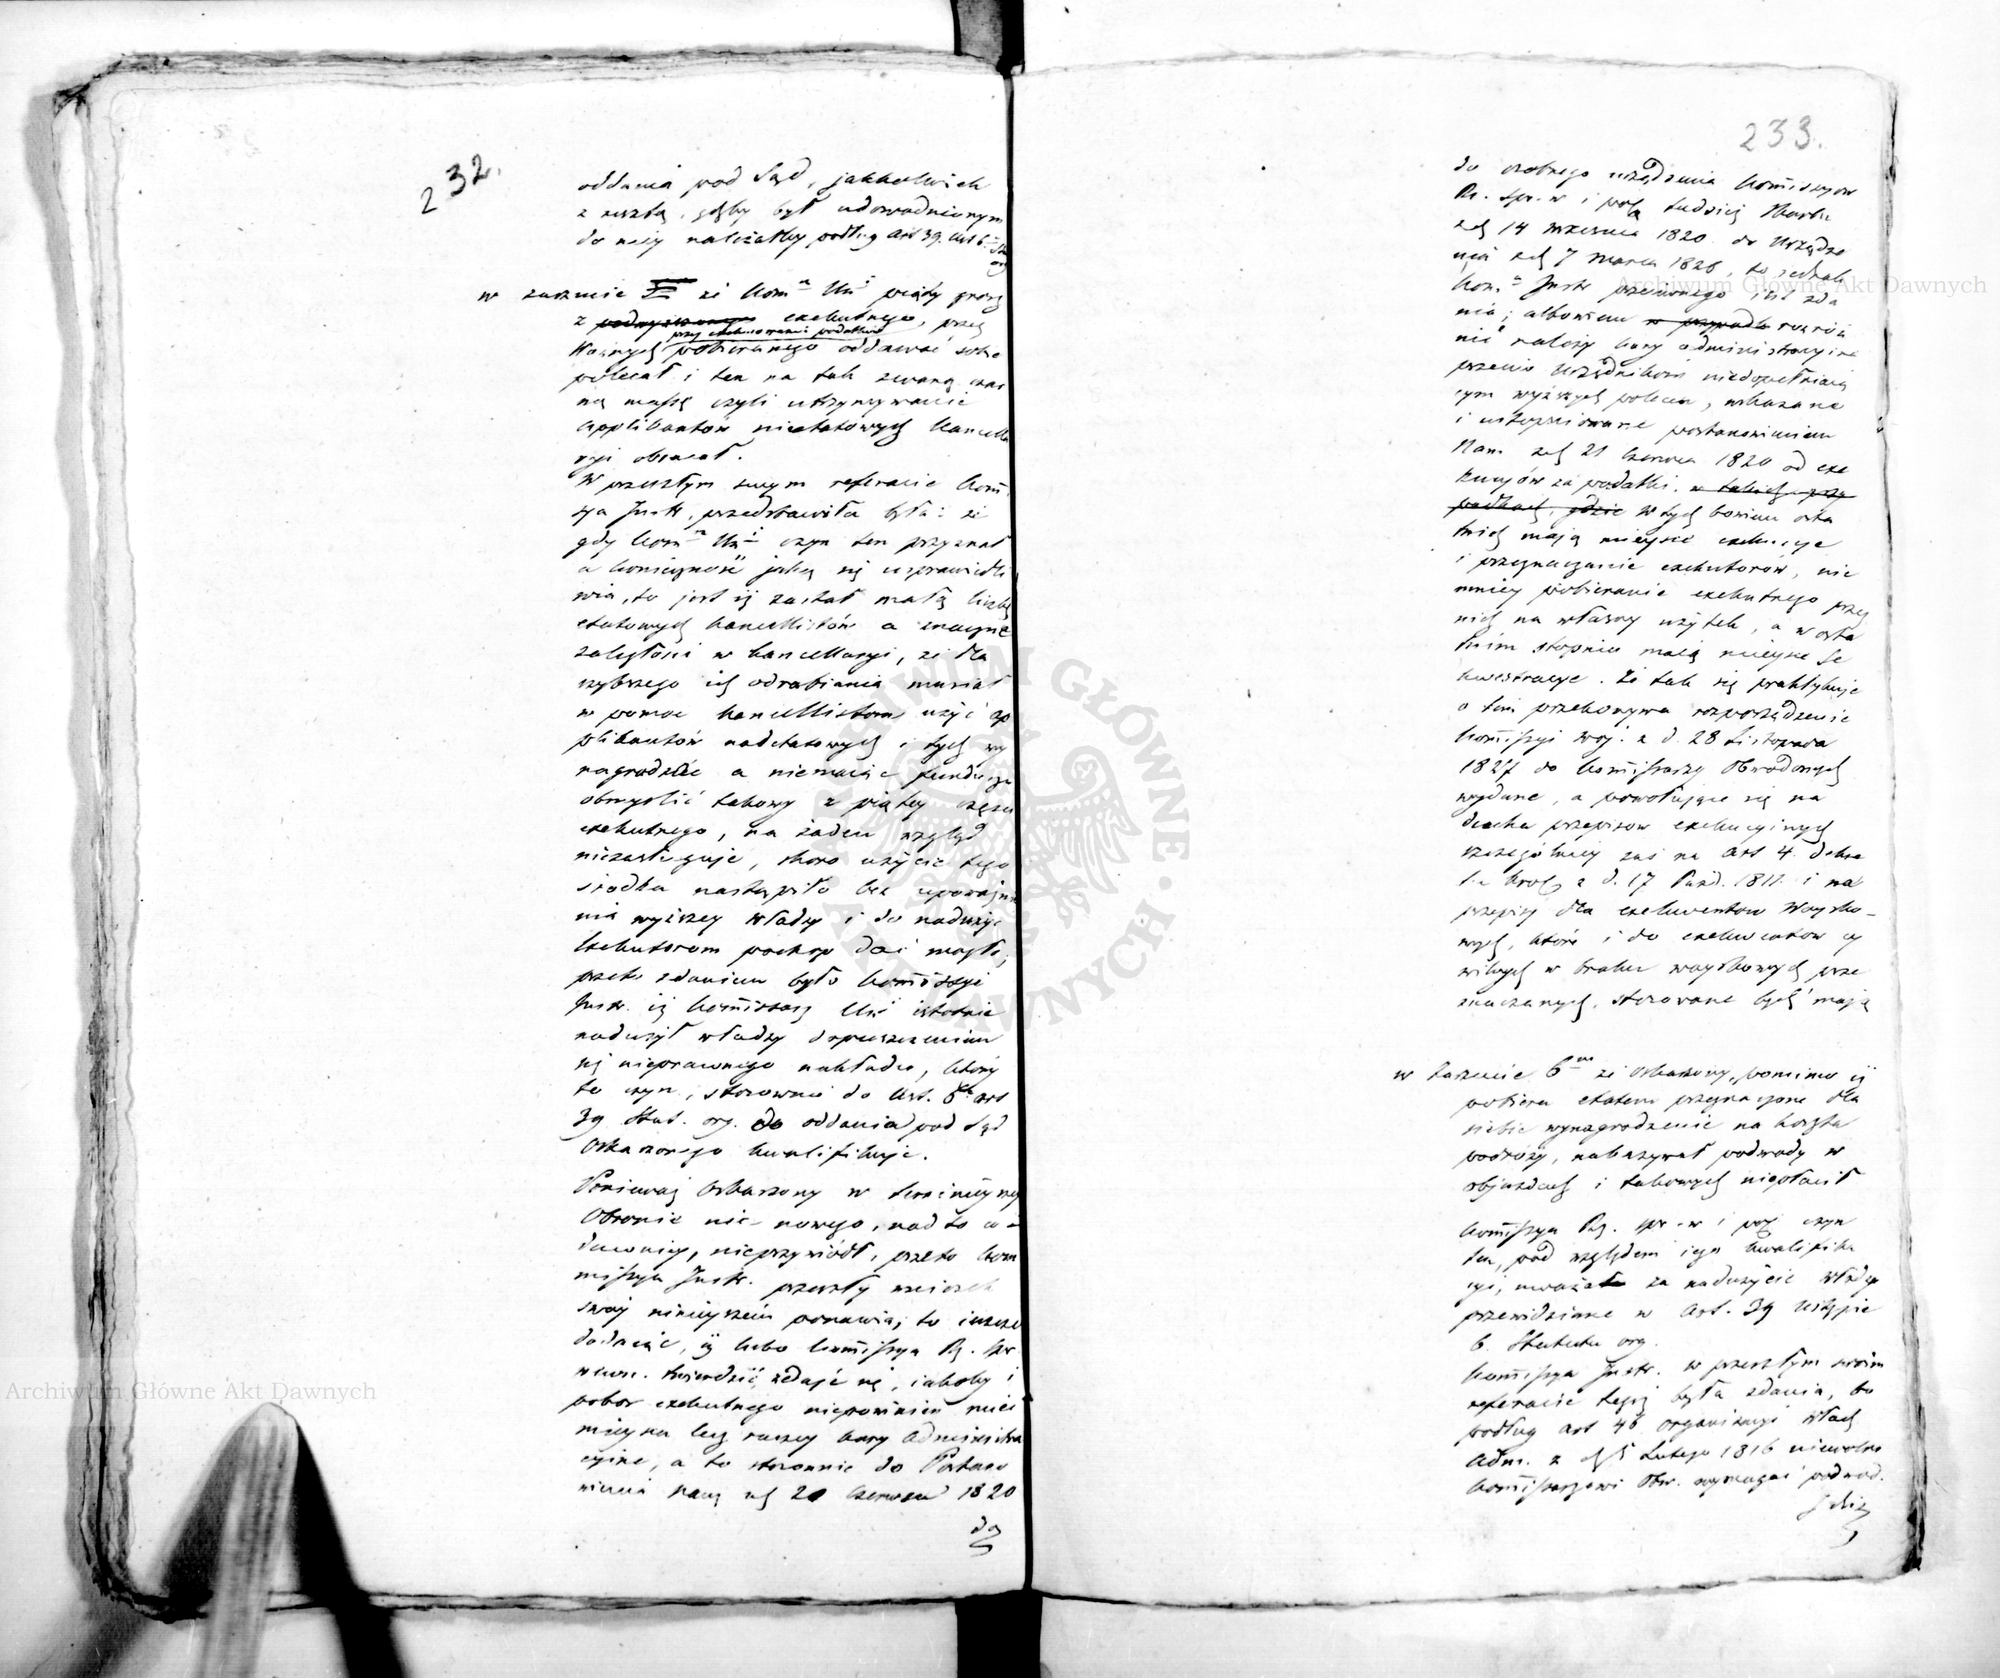 232.
oddania pod Sąd, jakkolwiek
z resztą, gdyby był udowodnionym
do niey należałby podług art 39. ust 6. Stu
org
w zarzucie że Komr Un piąty grosz
z podwyższonego exekutnego, przez
przy exekwowaniu podatków
Woźnych pobieranego oddawać sobie
polecał i ten na tak zwaną czar
ną massę czyli utrzymywanie
applikantów nieetatowych kancella
ryi obracał.
W przeszłym swym referacie Kom
sya Instr. przedstawiła była: że
gdy Komr Uni czyn ten przyznał
a konieczność jaką się usprawiedli
wia, to jest iż zastał małą liczbę
etatowych kancellistów a znaczne
zaległości w kancellaryi, że dla
szybszego ich odrabiania musiał
w pomoc kancellistom użyć ap
plikantów nadetatowych i tych wy
nagrodzić a niemaiąc funduszu
obmyślić takowy z piątey części
exekutnego, na żaden wzgląd
niezasługuje, skoro użycie tego
środka nastąpiło bez upoważnie
nia wyższey władzy i do nadużyć
Exekutorom pochop dać mogło,
przeto zdaniem było Kommissyi
Instr. iż Kommissarz Uni istotnie
nadużył władzy dopuszczeniem
się nieprawnego nakładu, który
to czyn, stosownie do Ust. 6 art
39 Stat. org. do oddania pod Sąd
Oskarżonego kwalifikuje.
Ponieważ Oskarżony w terminieyszey
Obronie nic nowego, nad to co
dawniey, nieprzywiódł, przeto Kom
missya Instr. przeszły wniosek
swóy ninieyszem ponawia; to ieszcze
dodaiąc, iż lubo Kommissya Rz. Spr
wewn. twierdzić zdaje się, iakoby i
pobór exekutnego niepowinien mieć
mieysca lecz raczey kary Administra
cyine, a to stosownie do Postano
wienia Nam z d 21 Czerwca 1820
do
233.
do osobnego urządzenia Kommissyów
Rz. Spr. w i pol tudzież Skarbu
z d 14 Września 1820 do Urządze
nia z d 7 Marca 1826, to jednak
Kom. Instr przeciwnego jest zda
nia; albowiem w przypadk rozróż
nić należy kary administracyine
przeciw Urzędnikom niedopełniaią
cym wyższych poleceń, wskazane
i ustopniowane postanowieniem
Nam z d 21 Czerwca 1820 od exe
kucyów za podatki. w takich przy
padkach, gdzie W tych bowiem osta
tnich mają mieysce exekucye
i przeznaczanie exekutorów, nie
mniey pobieranie exekutnego przez
nich na własny użytek, a w osta
tnim stopniu maią mieysce Se
kwestracye. Że tak się praktykuje
o tem przekonywa rozporządzenie
Kommissyi Woj. z d. 28 Listopada
1827 do Kommissarzy Obwodowych
wydane, a powołujące się na
ducha przepisów exekucyinych
szczególniey zaś na Art 4. dekre
tu Król z d. 17 Paźd. 1811. i na
przepisy dla exekwentów Woysko-
wych, które i do exekwentów cy
wilnych w braku woyskowych prze
znaczanych, stosowane być mają
w zarzucie 6m że Oskarżony, pomimo iż
pobiera etatem przeznaczone dla
siebie wynagrodzenie na koszta
podróży, nakazywał podwody w
objazdach i takowych niepłacił
Kommissya Rz. spr w i pol czyn
ten, pod względem iego kwalifika
cyi, uważała za nadużycie władzy
przewidziane w Art. 39 Ustępie
6. Statutu org.
Kommissya Instr. w przeszłym swoim
referacie tegoż była zdania, bo
podług art 46 organizacyi Władz
Adm. z d 5 Lutego 1816 niewolno
Kommissarzowi Obw. wymagać podwod.
Gdzie
Archiwum Główne Akt Dawnych
Archiwum Główne Akt Dawnych
ARCHIWUM GŁÓWNE AKT DAWNYCH